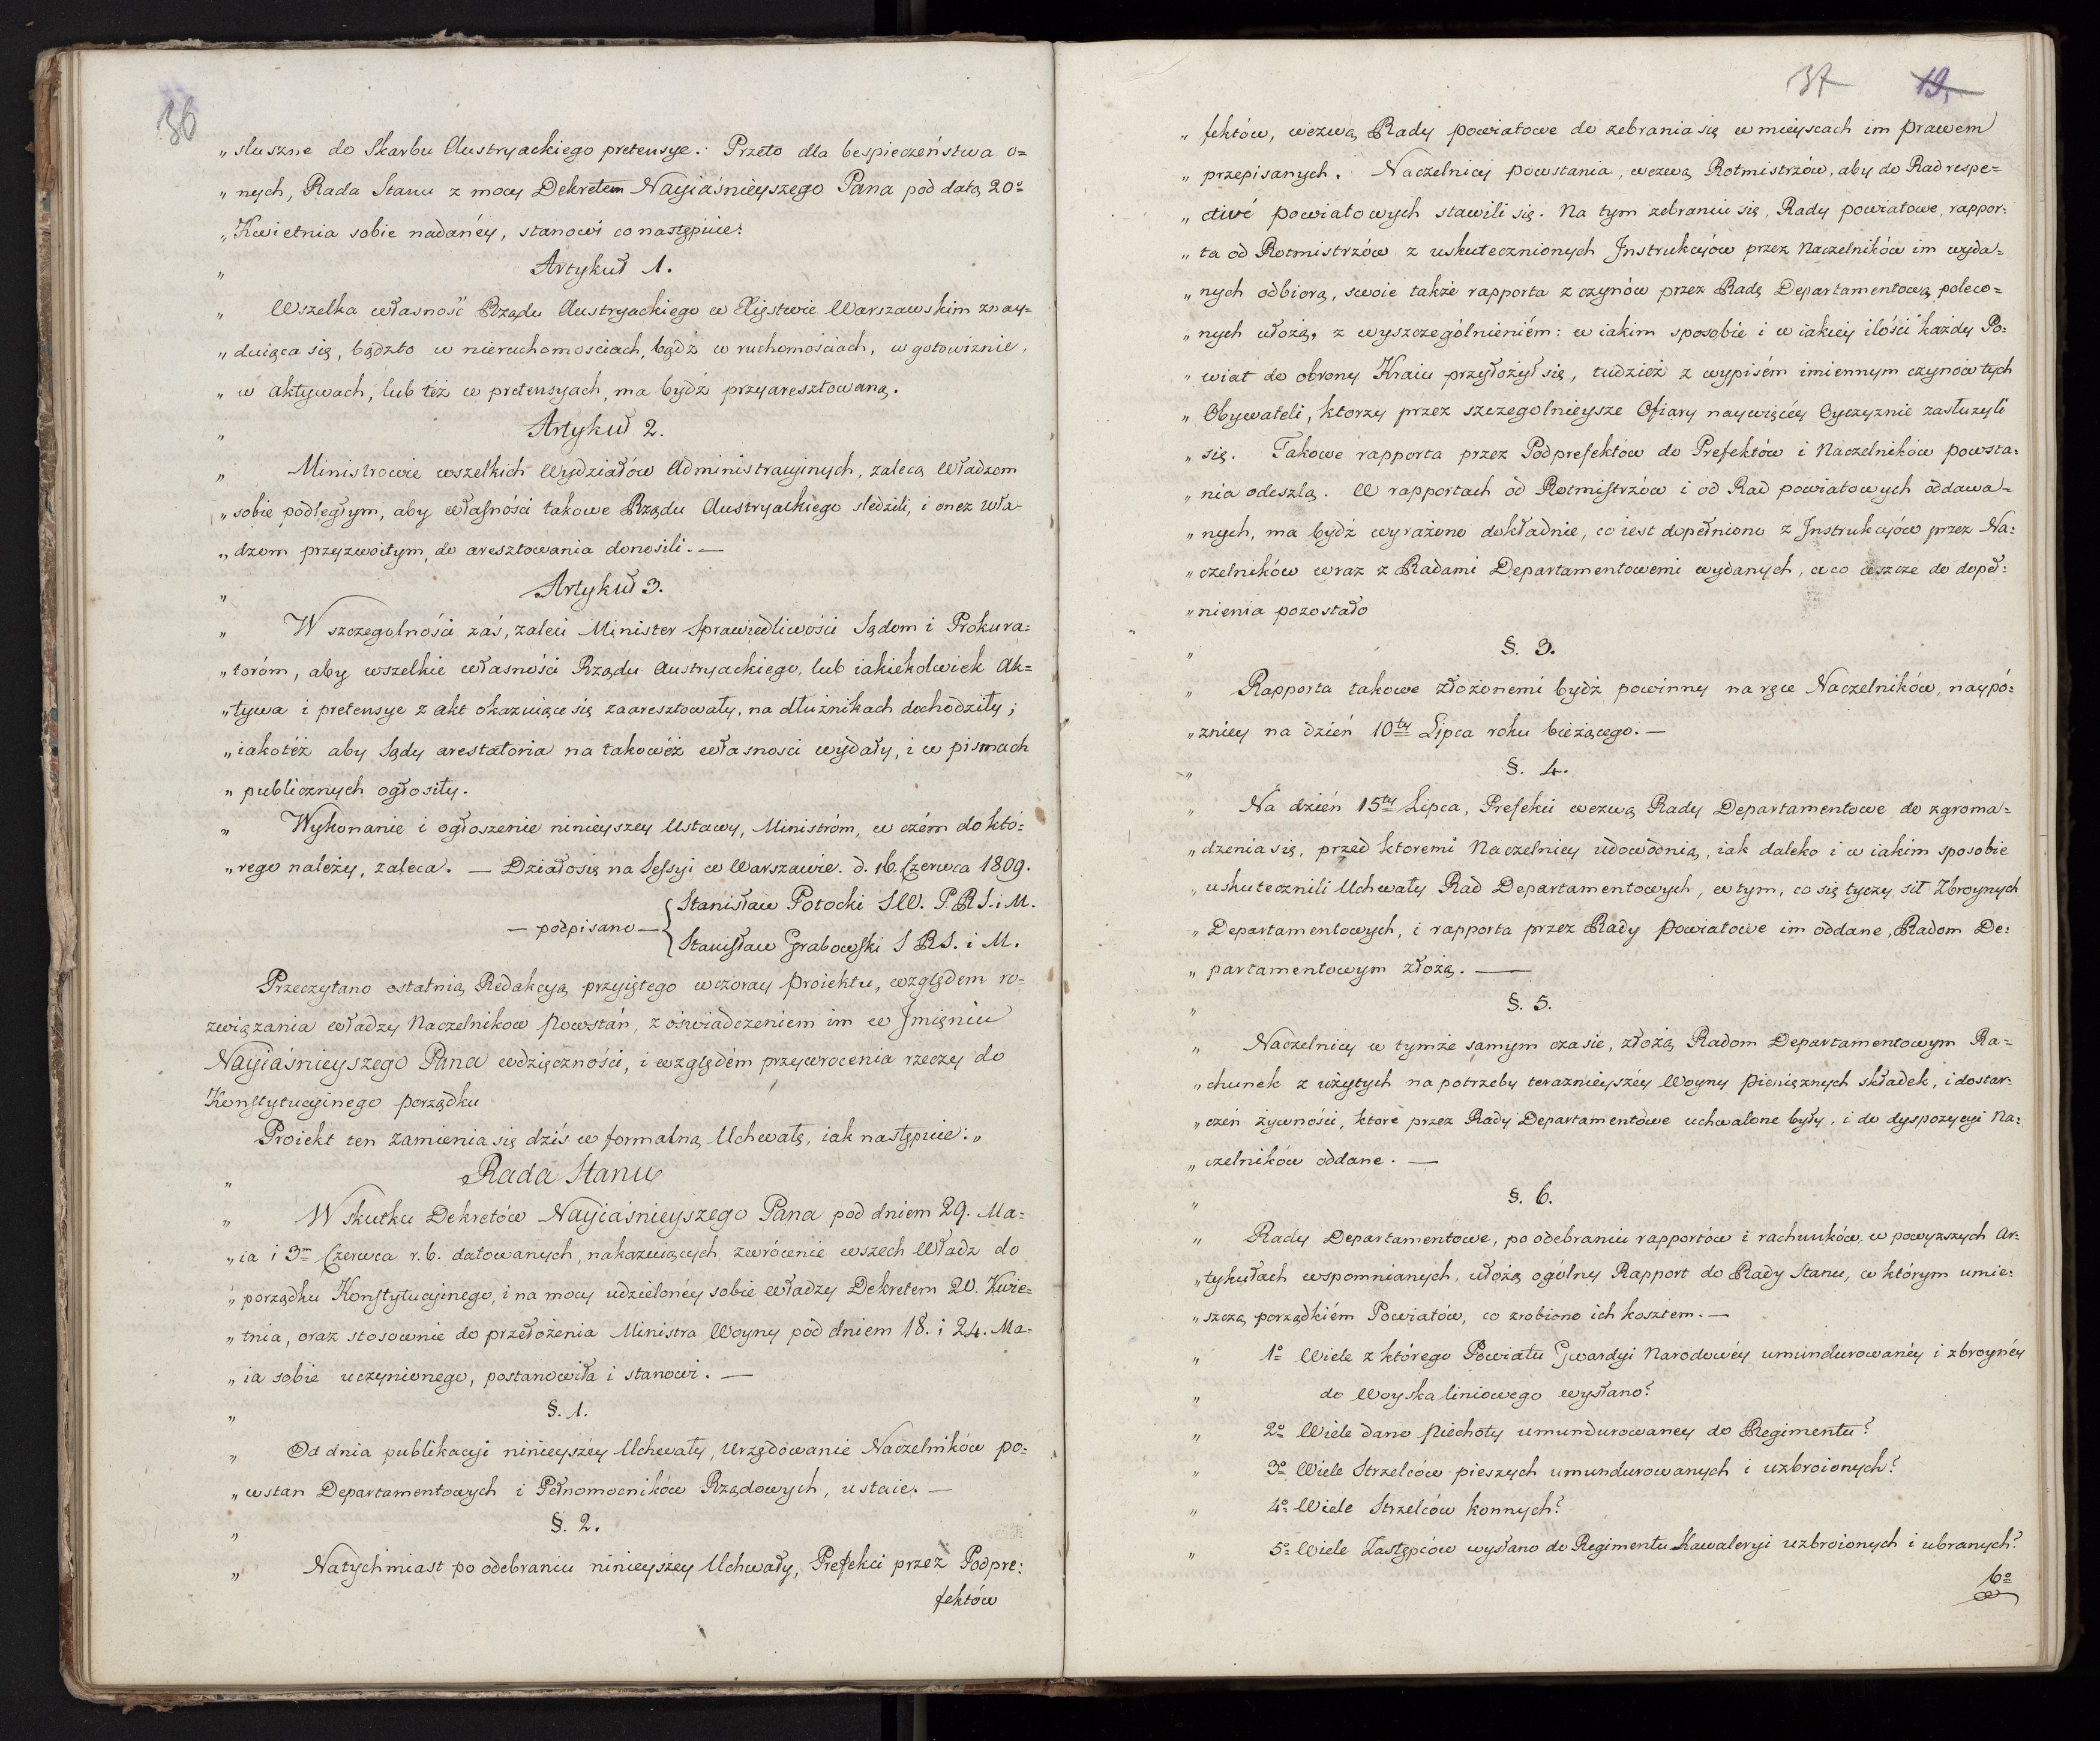 36
„ słuszne do Skarbu Austryackiego pretensye. Przeto dla bespieczeństwa o=
„ nych, Rada Stanu z mocy Dekretem Nayiaśnieyszego Pana pod datą 20º
„ Kwietnia sobie nadanéy, stanowi co następuie:
„ Artykuł 1.
„ Wszelka własność Rządu Austryackiego w Xięstwie Warszawskim znay=
„ duiąca się, bądźto w nieruchomosciach, bądź w ruchomościach, w gotowiznie,
„ w aktywach, lub téż w pretensyach, ma bydź przyaresztowaną.
„ Artykuł 2.
„ Ministrowie wszelkich Wydziałów Administracyinych, zalecą Władzom
„ sobie podległym, aby własności takowe Rządu Austryackiego sledzili, i onez Wła-
„ dzom przyzwoitym, do aresztowania donosili. —
„ Artykuł 3.
„ W szczegolności zaś, zaleci Minister Sprawiedliwości Sądom i Prokura=
„ toróm, aby wszelkie własności Rządu Austryackiego, lub iakiekolwiek Ak=
„ tywa i pretensye z akt okazuiące się zaaresztowały, na dłużnikach dochodziły;
„ iakotéż aby Sądy arestatoria na takowéż własnosci wydały, i w pismach
„ publicznych ogłosiły.
„ Wykonanie i ogłoszenie ninieyszey Ustawy, Ministróm, w czém do któ=
„ rego należy, zaleca. — Działosię na Sessyi w Warszawie. d. 16. Czerwca 1809.
— podpisano — { Stanisław Potocki S.W. P. R S. i M.
Stanisław Grabowski S RS. i M.
Przeczytano ostatnią Redakcyą przyiętego wczoray proiektu, względem ro=
związania władzy Naczelnikow Powstań, z oświadczeniem im w Imięniu
Nayiaśnieyszego Pana wdzięczności, i względém przywrocenia rzeczy do
Konstytucyinego porządku
Proiekt ten zamienia się dziś w formalną Uchwałę, iak następuie: „
„ Rada Stanu
„ W skutku Dekretów Nayiaśnieyszego Pana pod dniem 29. Ma=
„ ia i 3m Czerwca r. b. datowanych, nakazuiących zwrócenie wszech Władz do
„ porządku Konstytucyinego, i na mocy udzielonéy sobie władzy Dekretem 20. Kwie=
„ tnia, oraz stosownie do przełożenia Ministra Woyny pod dniem 18. i 24. Ma-
„ ia sobie uczynionego, postanowiła i stanowi. —
„ §. 1.
„ Od dnia publikacyi ninieyszéy Uchwały, Urzędowanie Naczelników po=
„ wstan Departamentowych i Pełnomocników Rządowych, ustaie. —
„ §. 2.
„ Natychmiast po odebraniu ninieyszey Uchwały, Prefekci przez Podpre=
fektów
37 19.
„ fektów, wezwą Rady powiatowe do zebrania się w mieyscach im prawem
„ przepisanych. Naczelnicy powstania, wezwą Rotmistrzów, aby do Rad respe=
„ ctivé powiatowych stawili się. Na tym zebraniu się, Rady powiatowe, rappor=
„ ta od Rotmistrzów z uskutecznionych Instrukcyów przez Naczelników im wyda=
„ nych odbiorą, swoie także rapporta z czynów przez Radę Departamentową poleco=
„ nych ułożą, z wyszczególnieniém: w iakim sposobie i w iakiey ilości każdy Po=
„ wiat do obrony Kraiu przyłożył się, tudzież z wypisém imiennym czynów tych
„ Obywateli, ktorzy przez szczegolnieysze Ofiary naywięcéy Oyczyznie zasłużyli
„ się. Takowe rapporta przez Podprefektów do Prefektów i Naczelników powsta=
„ nia odeszlą. W rapportach od Rotmistrzów i od Rad powiatowych oddawa=
„ nych, ma bydź wyrażono dokładnie, co iest dopełniono z Instrukcyów przez Na=
„ czelników wraz z Radami Departamentowemi wydanych, a co ieszcze do dopeł=
„ nienia pozostało
„ §. 3.
„ Rapporta takowe złożonemi bydź powinny na ręce Naczelników, naypó=
„ zniey na dzień 10ty Lipca roku bieżącego. —
„ §. 4.
„ Na dzień 15ty Lipca, Prefekci wezwą Rady Departamentowe do zgroma=
„ dzenia się, przed ktoremi Naczelnicy udowodnią, iak daleko i w iakim sposobie
„ uskutecznili Uchwały Rad Departamentowych, w tym, co się tyczy sił Zbroynych
„ Departamentowych, i rapporta przez Rady powiatowe im oddane, Radom De=
„ partamentowym złożą. —
„ §. 5.
„ Naczelnicy w tymże samym czasie, złożą Radom Departamentowym Ra=
„ chunek z użytych na potrzeby teraznieyszéy Woyny pieniężnych składek, i dostar=
„ czeń żywności, ktoré przez Rady Departamentowe uchwalone były, i do dyspozycyi Na=
„ czelników oddane. —
„ §. 6.
„ Rady Departamentowe, po odebraniu rapportów i rachunków, w powyzszych Ar=
„ tykułach wspomnianych, ułożą ogólny Rapport do Rady Stanu, w którym umie=
„ szczą porządkiém Powiatów, co zrobiono ich kosztem. —
„ 1º Wiele z którego Powiatu Gwardyi Narodowéy umundurowanéy i zbroynéy
„ do Woyska liniowego wysłano?
„ 2º Wiele dano piechoty umundurowaney do Regimentu?
„ 3º Wiele Strzelców pieszych umundurowanych i uzbroionych?
„ 4º Wiele Strzelców konnych?
„ 5º Wiele Zastępców wysłano do Regimentu Kawaleryi uzbroionych i ubranych?
6º